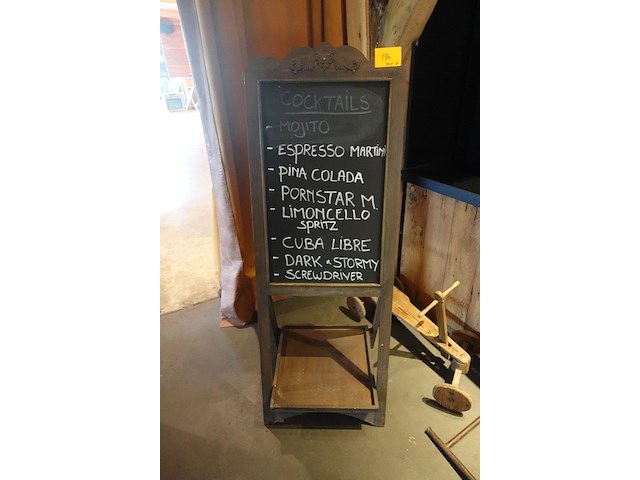 COCKTAILS
- MOJITO
- ESPRESSO MARTINI
- PINA COLADA
- PORNSTAR M.
- LIMONCELLO
SPRITZ
- CUBA LIBRE
- DARK & STORMY
- SCREWDRIVER